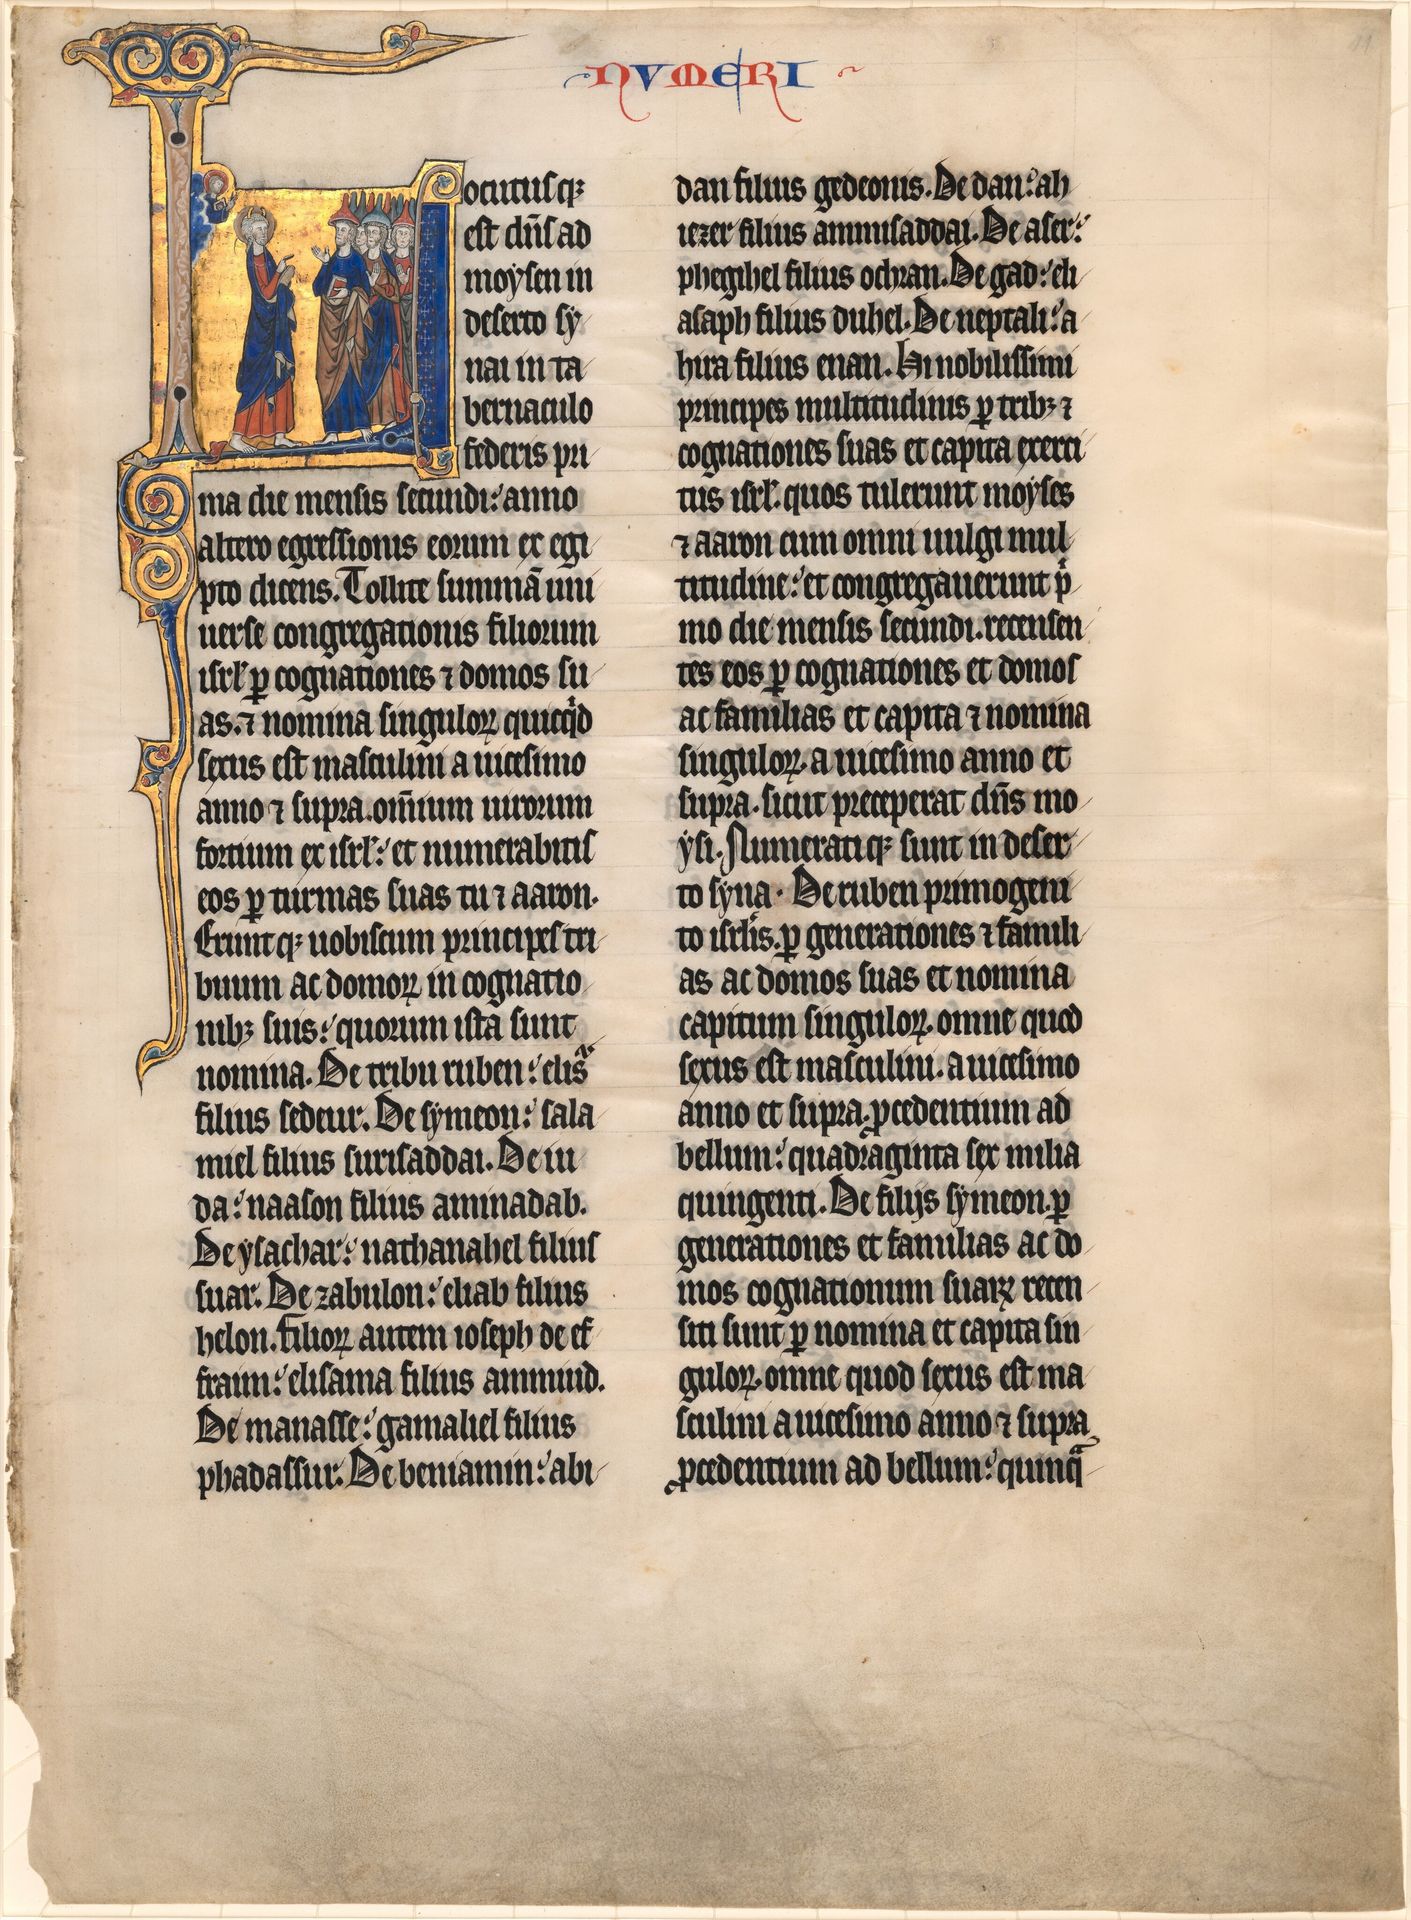 NVMERI
Locutusq;
est dn̄s ad
moysen in
deserto sy
nai in ta
bernaculo
federis pri
ma die mensis secundi: anno
altero egressionis eorum ex egi
pto dicens. Tollite summā uni
uerse congregationis filiorum
isrl' ꝑ cognationes ⁊ domos su
as. ⁊ nomina singuloꝝ quicq̇d
sexus est masculini a uicesimo
anno ⁊ supra. om̄ium uirorum
fortium ex isrl': et numerabitis
eos ꝑ turmas suas tu ⁊ aaron.
Eruntq; uobiscum principes tri
buum ac domoꝝ in cognatio
nibꝫ suis: quorum ista sunt
nomina. De tribu ruben: elisᵃ
filius sedeur. De symeon: sala
miel filius surisaddai. De iu
da: naason filius aminadab.
De ysachar: nathanahel filius
suar. De zabulon: eliab filius
helon. filioꝝ autem ioseph de ef
fraim: elisama filius ammiud.
De manasse: gamaliel filius
phadassur. De beniamin: abi
dan filius gedeonis. De dan: ah
iezer filius amnisaddai. De aser:
phegihel filius ochran. De gad: eli
asaph filius duhel. De neptali: a
hira filius enan. Hi nobilissimi
principes multitudinis ꝑ tribꝫ ⁊
cognationes suas et capita exerci
tus isrl'. quos tulerunt moyses
⁊ aaron cum omni uulgi mul
titudine: et congregauerunt pⁱ
mo die mensis secundi. recensen
tes eos ꝑ cognationes et domos
ac familias et capita ⁊ nomina
singuloꝝ. a uicesimo anno et
supra. sicut preceperat dn̄s mo
ysi. Numeratiq; sunt in deser
to syna. De ruben primogeni
to isrl'is. ꝑ generationes ⁊ famili
as ac domos suas et nomina
capitum singuloꝝ. omne quod
sexus est masculini. a uicesimo
anno et supra. ꝓcedentium ad
bellum: quadraginta sex milia
quingenti. De filijs symeon. ꝑ
generationes et familias ac do
mos cognationum suaꝝ recen
siti sunt ꝑ nomina et capita sin
guloꝝ. omne quod sexus est ma
sculini a uicesimo anno ⁊ supra
ꝓcedentium ad bellum: quinqᵃ